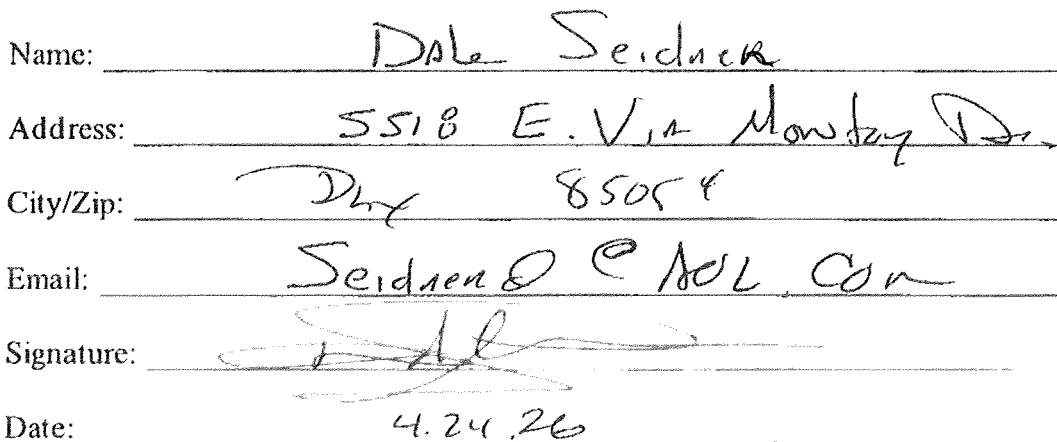 Name: Dale Seidner
Address: 5518 E. Via Montoy Dr.
City/Zip: Phx 85054
Email: Seidner @ AOL.Com
Signature:
Date: 4.24.26